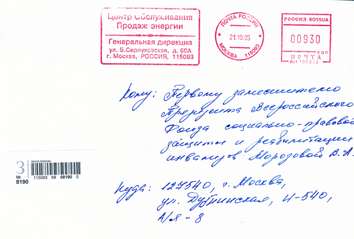 Центр Обслуживания
Продаж энергии
Генеральная дирекция
ул. Б.Серпуховская, д. 60А
г. Москва, РОССИЯ, 115093
ПОЧТА РОССИИ
МОСКВА 115093
РОССИЯ ROSSIJA
00930
ПОЧТА
Кому: Первому заместителю
Президента Всероссийского
Фонда социально-правовой
защиты и реабилитации
инвалидов Морозовой В.А.
3
№
9190
Куда: 127540, г. Москва,
ул. Дубнинская, И-540,
А/Я - 8